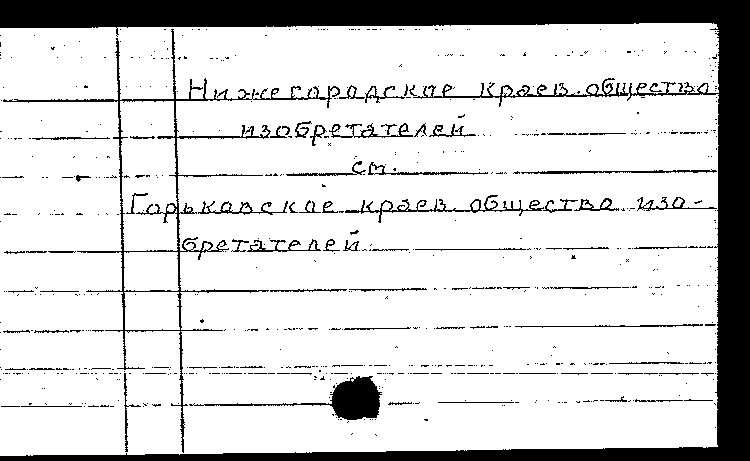 Нижегородское краев. общество
изобретателей
см.
Горьковское краев. общество изо-
бретателей